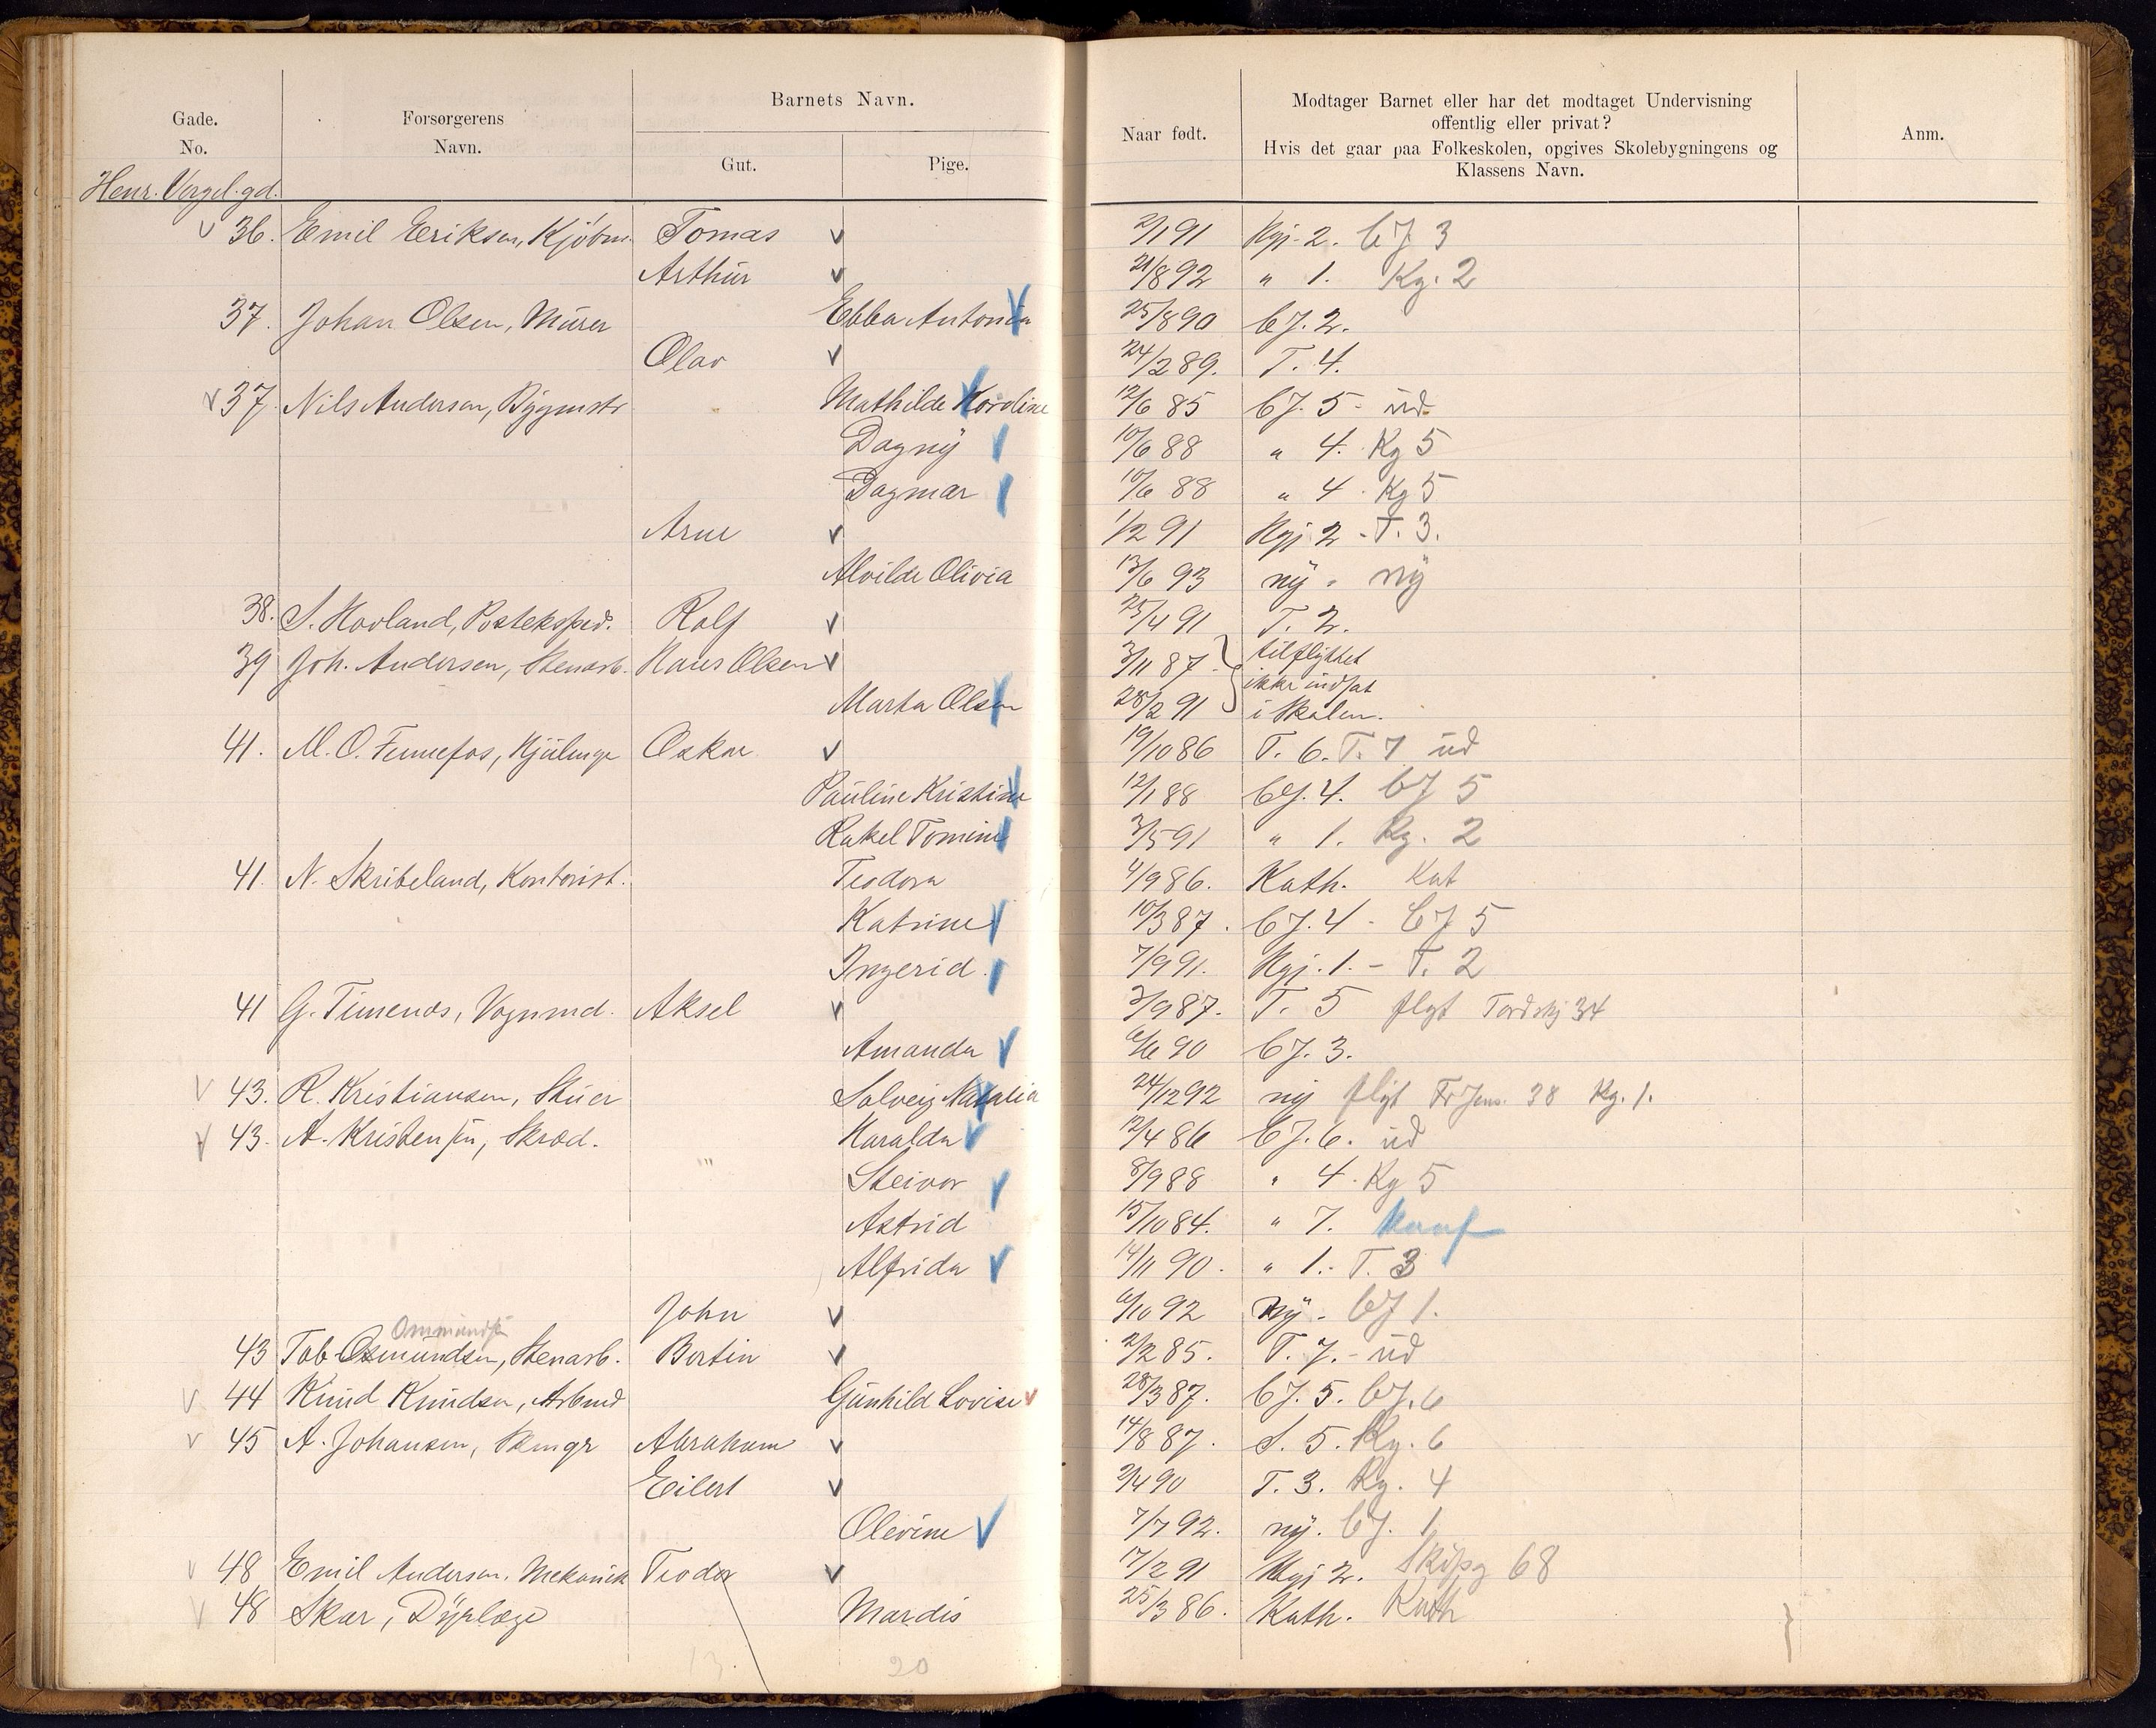 Gade. No. Forsørgerens Navn. Barnets Navn. Gut. Pige. Naar født. Modtager Barnet eller har det modtaget Undervisning offentlig eller privat? Hvis det gaar paa Folkeskolen, opgives Skolebygningens og Klassens Navn. Anm.
Henr. Vergel.gd.
36. Emil Eriksen, Kjöbm. Tomas 2/1 91 Kgj. 2. 3
Arthur 21/8 92 " 1. Kg. 2
37. Johan Olsen, Murer Ebba Antonia 25/8 90 2.
Olav 24/2 89. T. 4.
37. Nils Andersen, Bygmstr Mathilde Karoline 12/6 85 5 - ud.
Dagny 10/6 88 " 4. Kg 5
Dagmar 10/6 88 " 4. Kg 5
Arne 1/2 91 Kgj 2 - T. 3.
Alvilde Olivia 13/6 93 ny - ny
38. S. Hovland, Posteksped. Rolf 25/4 91 T. 2.
39 Joh. Andersen, Stenarb. Hans Olsen 3/11 87 tilflyttet
ikke indsat
Marta Olsen 28/2 91 i Skolen.
41. M. O. Fennefos, Oskar 19/10 86 T. 6. T. 7 ud
Pauline Kristine 12/1 88 4. 5
Rakel Tomine 3/5 91 " 1. Kg. 2
41. N. Skribeland, Kontorist. Teodora 4/9 86. Kath. Kat
Katrine 10/3 87. 4 - 5
Ingerid. 7/9 91. Kgj. 1. - T. 2
41 G. Timenes, Vognmd. Aksel 3/9 87. T. 5 flyt Tordskj 34
Amanda 6/6 90 3.
43. R. Kristiansen, Stuer Solveig Natalia 24/12 92 ny flyt Fr Jens. 38 Kg. 1.
43. A. Kristensen, Skræd. Haralda 12/4 86 6. ud
Steivor 8/9 88 " 4. Kg 5
Astrid 15/10 84. " 7. konf
Alfrida 14/11 90. " 1. - T. 3
John 6/10 92 ny - 1.
Ommundsen
43 Tob. Osmundsen, Stenarb. Bertin 2/2 85. T. 7. - ud
44 Knud Knudsen, Arbmd Gunhild Lovise 28/3 87. 5. 6
45 A. Johansen, Abraham 14/8 87. S. 5. Kg. 6
Eilert 2/4 90 T. 3. Kg. 4
Olevine 7/7 92. ny. 1
48 Emil Andersen, Mekanik Teodor 17/2 91 Kgj 2. 68
48 Skar, Dyrlæge Mardis 25/3 86. Kath. Kath
13. 20